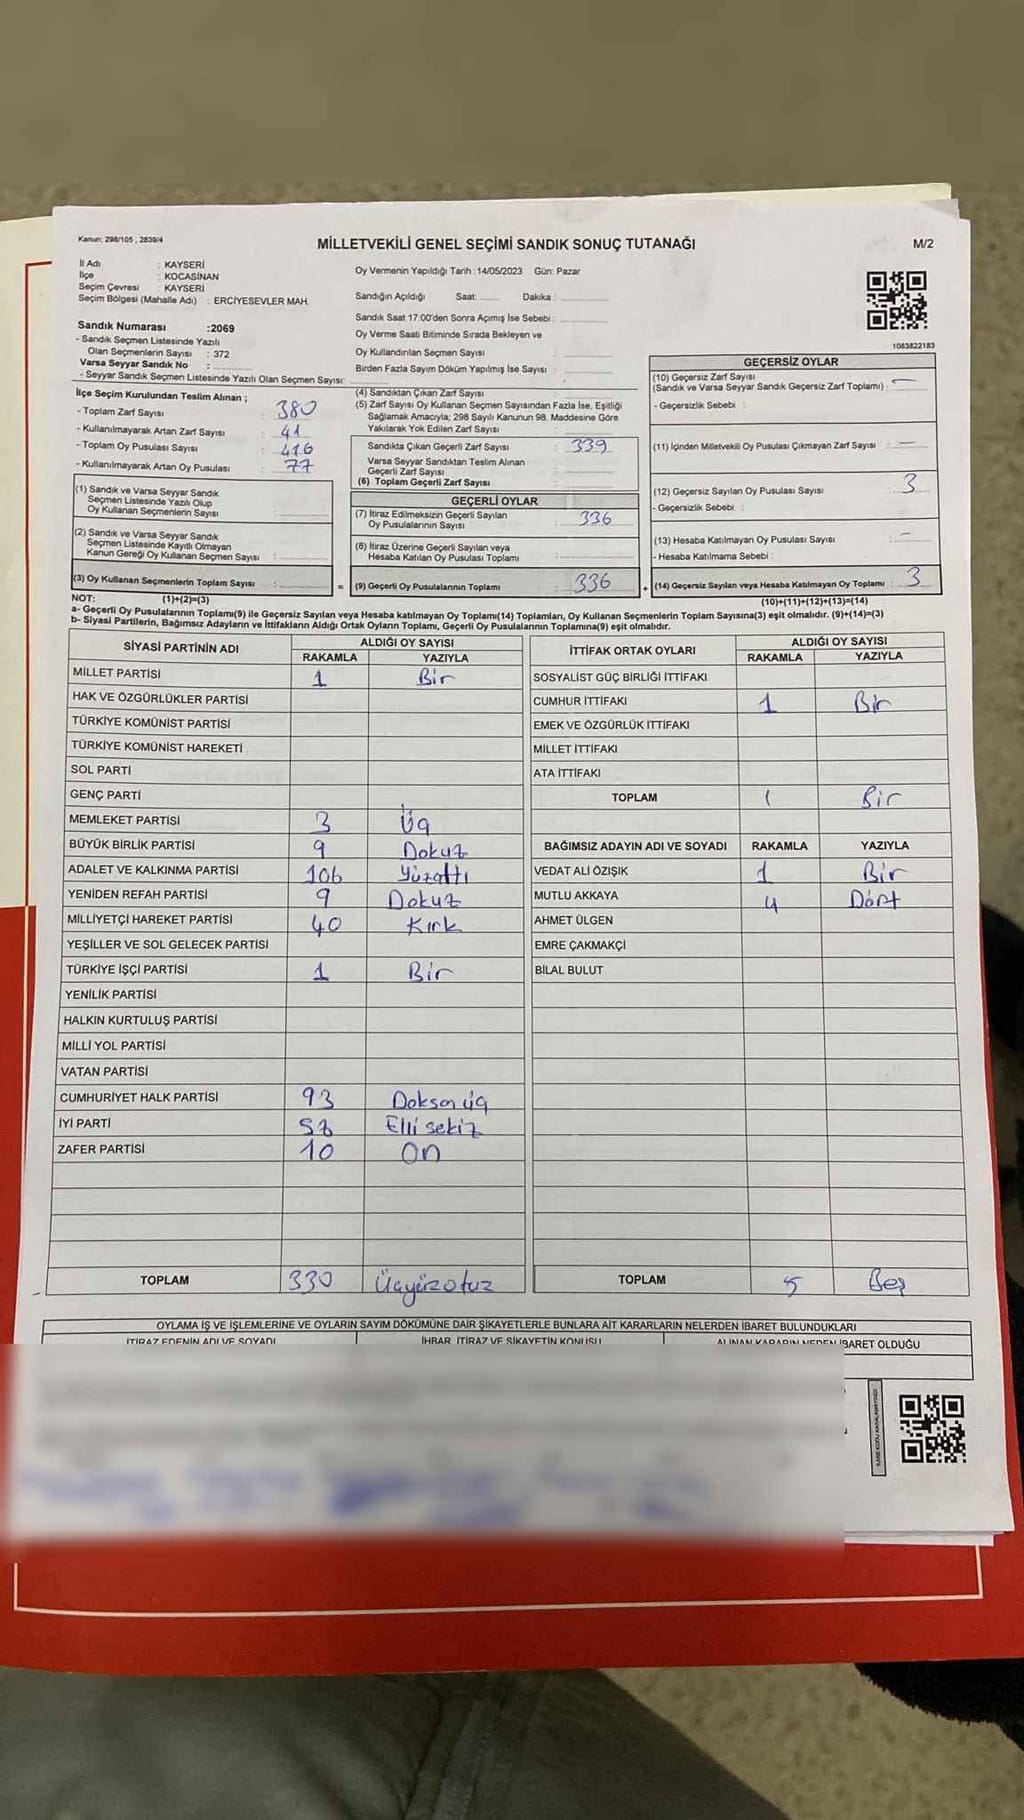 Kanun: 298/105 , 2839/4
MİLLETVEKİLİ GENEL SEÇİMİ SANDIK SONUÇ TUTANAĞI
M/2
İl Adı : KAYSERİ
İlçe : KOCASİNAN
Seçim Çevresi : KAYSERİ
Seçim Bölgesi (Mahalle Adı) : ERCİYESEVLER MAH.
Sandık Numarası :2069
- Sandık Seçmen Listesinde Yazılı
Olan Seçmenlerin Sayısı : 372
Varsa Seyyar Sandık No :
- Seyyar Sandık Seçmen Listesinde Yazılı Olan Seçmen Sayısı:
Oy Vermenin Yapıldığı Tarih :14/05/2023 Gün: Pazar
Sandığın Açıldığı Saat: Dakika :
Sandık Saat 17:00'den Sonra Açımış İse Sebebi :
Oy Verme Saati Bitiminde Sırada Bekleyen ve
Oy Kullandırılan Seçmen Sayısı :
Birden Fazla Sayım Döküm Yapılmış İse Sayısı :
1083822183
İlçe Seçim Kurulundan Teslim Alınan ;
- Toplam Zarf Sayısı : 380
- Kullanılmayarak Artan Zarf Sayısı : 41
- Toplam Oy Pusulası Sayısı : 416
- Kullanılmayarak Artan Oy Pusulası : 77
(1) Sandık ve Varsa Seyyar Sandık
Seçmen Listesinde Yazılı Olup
Oy Kullanan Seçmenlerin Sayısı :
(2) Sandık ve Varsa Seyyar Sandık
Seçmen Listesinde Kayıtlı Olmayan
Kanun Gereği Oy Kullanan Seçmen Sayısı :
(3) Oy Kullanan Seçmenlerin Toplam Sayısı :
(4) Sandıktan Çıkan Zarf Sayısı :
(5) Zarf Sayısı Oy Kullanan Seçmen Sayısından Fazla İse, Eşitliği
Sağlamak Amacıyla; 298 Sayılı Kanunun 98. Maddesine Göre
Yakılarak Yok Edilen Zarf Sayısı :
Sandıkta Çıkan Geçerli Zarf Sayısı : 339
Varsa Seyyar Sandıktan Teslim Alınan
Geçerli Zarf Sayısı :
(6) Toplam Geçerli Zarf Sayısı :
GEÇERLİ OYLAR
(7) İtiraz Edilmeksizin Geçerli Sayılan
Oy Pusulalarının Sayısı : 336
(8) İtiraz Üzerine Geçerli Sayılan veya
Hesaba Katılan Oy Pusulası Toplamı :
= (9) Geçerli Oy Pusulalarının Toplamı : 336
GEÇERSİZ OYLAR
(10) Geçersiz Zarf Sayısı
(Sandık ve Varsa Seyyar Sandık Geçersiz Zarf Toplamı) : —
- Geçersizlik Sebebi :
(11) İçinden Milletvekili Oy Pusulası Çıkmayan Zarf Sayısı : —
(12) Geçersiz Sayılan Oy Pusulası Sayısı : 3
- Geçersizlik Sebebi :
(13) Hesaba Katılmayan Oy Pusulası Sayısı : —
- Hesaba Katılmama Sebebi :
+ (14) Geçersiz Sayılan veya Hesaba Katılmayan Oy Toplamı : 3
NOT: (1)+(2)=(3)
(10)+(11)+(12)+(13)=(14)
a- Geçerli Oy Pusulalarının Toplamı(9) ile Geçersiz Sayılan veya Hesaba katılmayan Oy Toplamı(14) Toplamları, Oy Kullanan Seçmenlerin Toplam Sayısına(3) eşit olmalıdır. (9)+(14)=(3)
b- Siyasi Partilerin, Bağımsız Adayların ve İttifakların Aldığı Ortak Oyların Toplamı, Geçerli Oy Pusulalarının Toplamına(9) eşit olmalıdır.
SİYASİ PARTİNİN ADI ALDIĞI OY SAYISI
RAKAMLA YAZIYLA
MİLLET PARTİSİ 1 Bir
HAK VE ÖZGÜRLÜKLER PARTİSİ
TÜRKİYE KOMÜNİST PARTİSİ
TÜRKİYE KOMÜNİST HAREKETİ
SOL PARTİ
GENÇ PARTİ
MEMLEKET PARTİSİ 3 Üç
BÜYÜK BİRLİK PARTİSİ 9 Dokuz
ADALET VE KALKINMA PARTİSİ 106 Yüzaltı
YENİDEN REFAH PARTİSİ 9 Dokuz
MİLLİYETÇİ HAREKET PARTİSİ 40 Kırk
YEŞİLLER VE SOL GELECEK PARTİSİ
TÜRKİYE İŞÇİ PARTİSİ 1 Bir
YENİLİK PARTİSİ
HALKIN KURTULUŞ PARTİSİ
MİLLİ YOL PARTİSİ
VATAN PARTİSİ
CUMHURİYET HALK PARTİSİ 93 Doksan üç
İYİ PARTİ 58 Elli sekiz
ZAFER PARTİSİ 10 On
TOPLAM 330 Üçyüzotuz
İTTİFAK ORTAK OYLARI ALDIĞI OY SAYISI
RAKAMLA YAZIYLA
SOSYALİST GÜÇ BİRLİĞİ İTTİFAKI
CUMHUR İTTİFAKI 1 Bir
EMEK VE ÖZGÜRLÜK İTTİFAKI
MİLLET İTTİFAKI
ATA İTTİFAKI
TOPLAM 1 Bir
BAĞIMSIZ ADAYIN ADI VE SOYADI RAKAMLA YAZIYLA
VEDAT ALİ ÖZIŞIK 1 Bir
MUTLU AKKAYA 4 Dört
AHMET ÜLGEN
EMRE ÇAKMAKÇİ
BİLAL BULUT
TOPLAM 5 Beş
OYLAMA İŞ VE İŞLEMLERİNE VE OYLARIN SAYIM DÖKÜMÜNE DAİR ŞİKAYETLERLE BUNLARA AİT KARARLARIN NELERDEN İBARET BULUNDUKLARI
İTİRAZ EDENİN ADI VE SOYADI İHBAR, İTİRAZ VE ŞİKAYETİN KONUSU ALINAN KARARIN NEDEN İBARET OLDUĞU